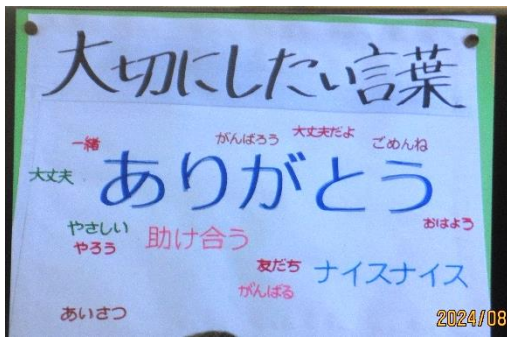 大切にしたい言葉
一緒
がんばろう
大丈夫だよ
ごめんね
大丈夫
ありがとう
おはよう
やさしい
やろう
助け合う
友だち
ナイスナイス
がんばる
あいさつ
2024/08